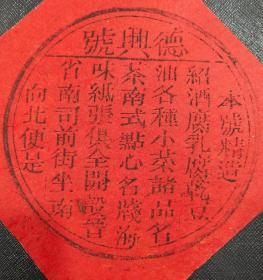 德興號
本號精造
紹酒腐乳腐乾豆
油各種小菜諸品名
茶南式點心名殘海
味紙張俱全開設晉
省南司前街坐南
向北便是